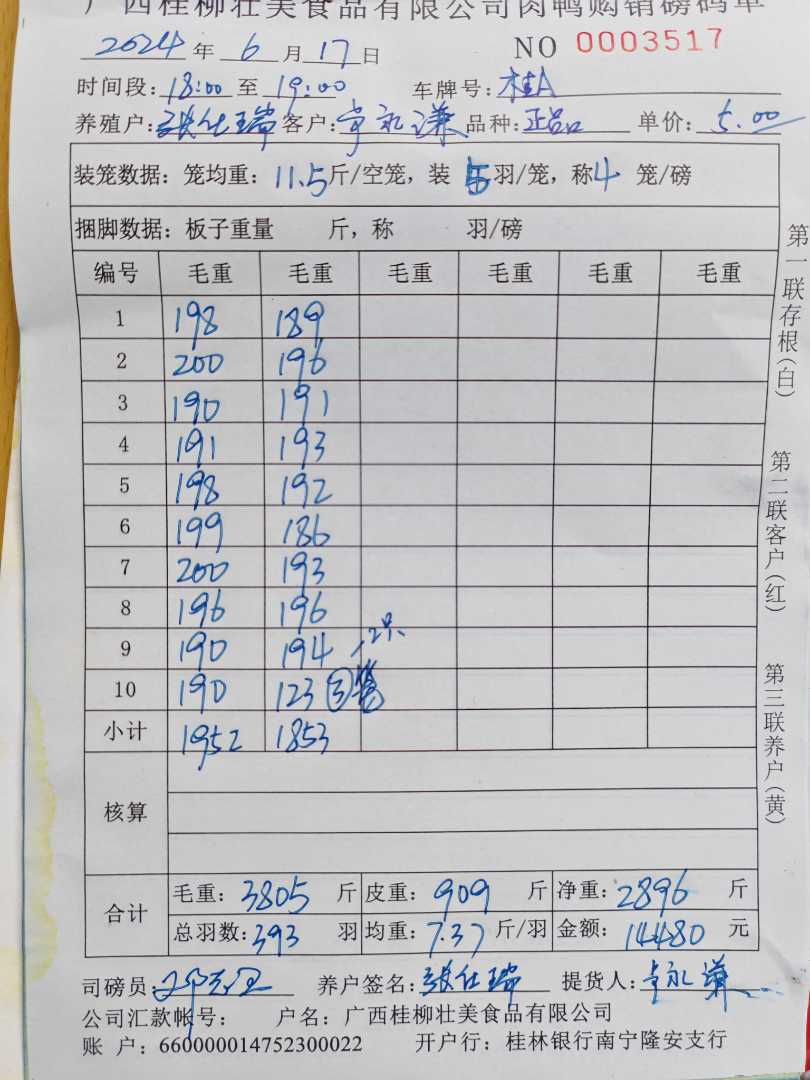 广西桂柳壮美食品有限公司肉鸭购销磅码单
2024 年 6 月 17 日 NO 0003517
时间段: 18:00 至 19:00 车牌号: 桂A
养殖户: 张仕瑞 客户: 韦永谦 品种: 正品 单价: 5.00
装笼数据: 笼均重: 11.5 斤/空笼, 装 5 羽/笼, 称 4 笼/磅
捆脚数据: 板子重量 斤, 称 羽/磅
编号 毛重 毛重 毛重 毛重 毛重 毛重
1 198 189
2 200 196
3 190 191
4 191 193
5 198 192
6 199 186
7 200 193
8 196 196
9 190 194 2只
10 190 123 ③笼
小计 1952 1853
核算
合计 毛重: 3805 斤 皮重: 909 斤 净重: 2896 斤
总羽数: 393 羽 均重: 7.37 斤/羽 金额: 14480 元
司磅员: 养户签名: 张仕瑞 提货人: 韦永谦
公司汇款帐号: 户名: 广西桂柳壮美食品有限公司
账 户: 660000014752300022 开户行: 桂林银行南宁隆安支行
第一联存根(白)
第二联客户(红)
第三联养户(黄)